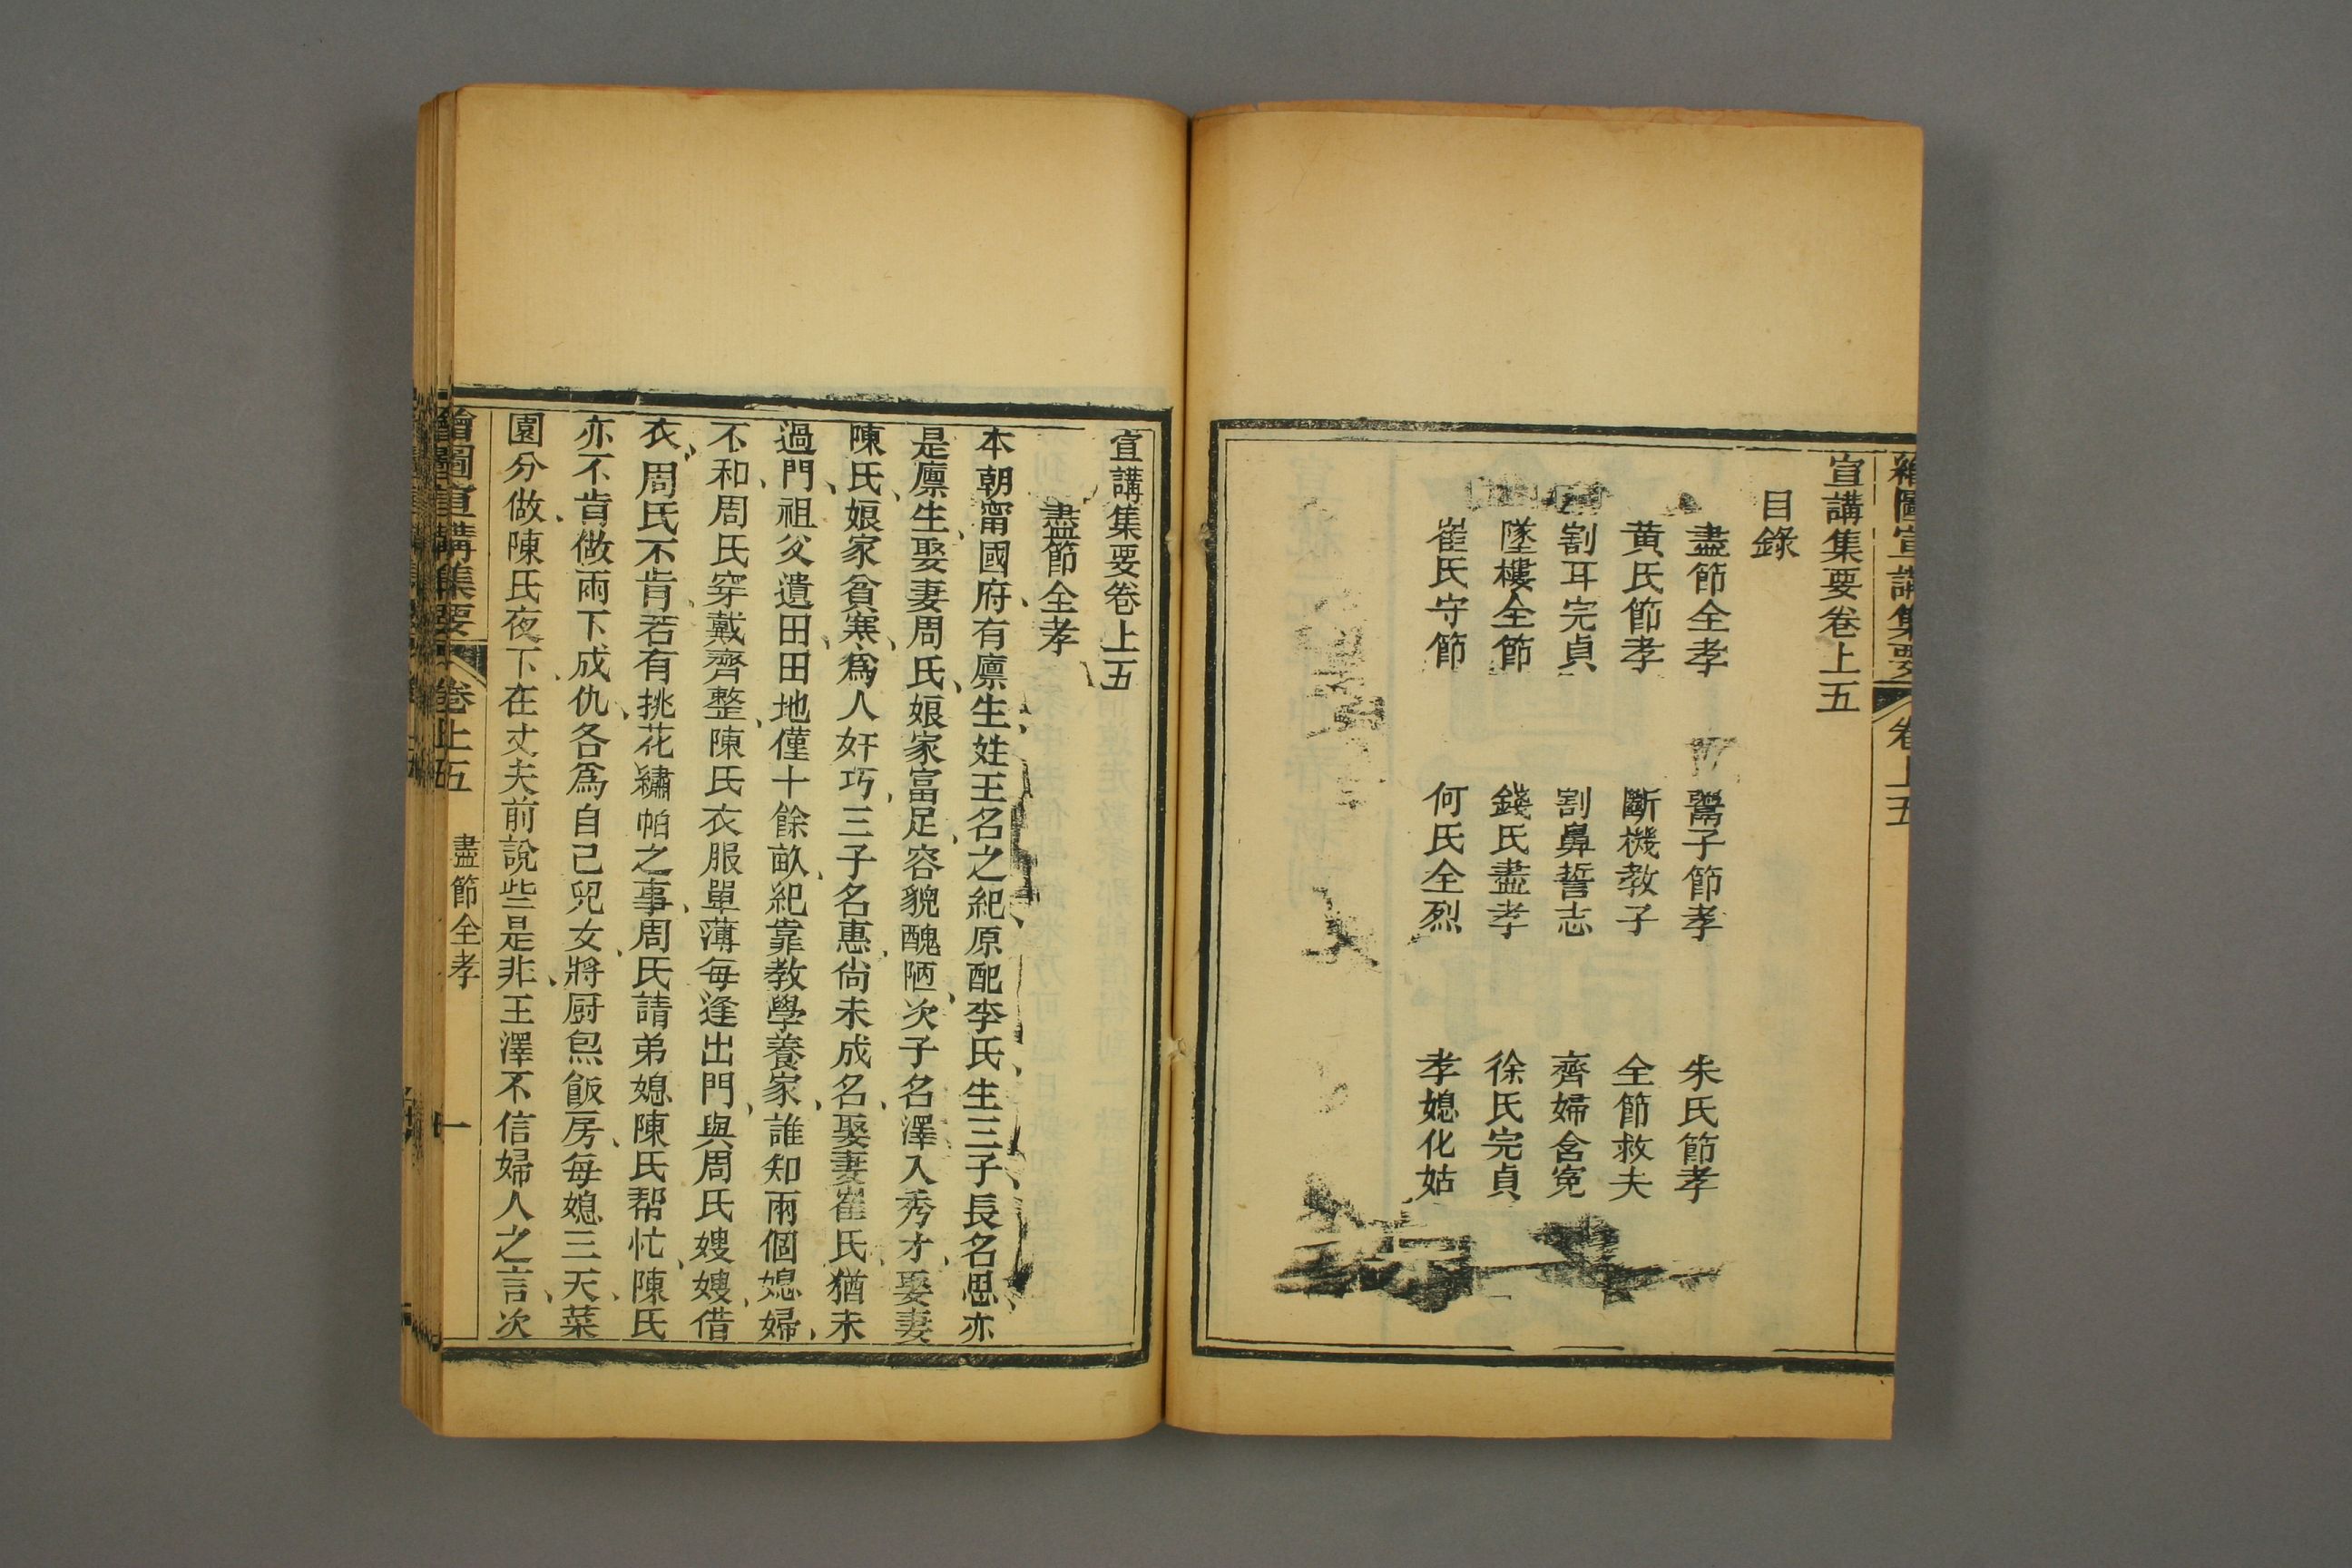 繪圖宣講集要 卷上五
宣講集要卷上五
目錄
盡節全孝 鬻子節孝 朱氏節孝
黃氏節孝 斷機教子 全節救夫
割耳完貞 割鼻誓志 齊婦含冤
墜樓全節 錢氏盡孝 徐氏完貞
崔氏守節 何氏全烈 孝媳化姑
宣講集要卷上五
盡節全孝
本朝甯國府、有廪生姓王名之紀、原配李氏、生三子、長名思、亦
是廪生、娶妻周氏、娘家富足、容貌醜陋、次子名澤、入秀才、娶妻
陳氏、娘家貧寒、爲人奸巧、三子名惠、尚未成名、娶妻崔氏、猶未
過門、祖父遺田、田地僅十餘畝、紀靠教學養家、誰知兩個媳婦、
不和、周氏穿戴齊整、陳氏衣服單薄、每逢出門、與周氏嫂嫂、借
衣、周氏不肯、若有挑花繡帕之事、周氏請弟媳陳氏帮忙、陳氏
亦不肯做、兩下成仇、各爲自己兒女、將厨炰飯房、每媳三天、菜
園分做、陳氏夜下、在丈夫前說些是非、王澤不信婦人之言、次
繪圖宣講集要 卷上五 盡節全孝 一